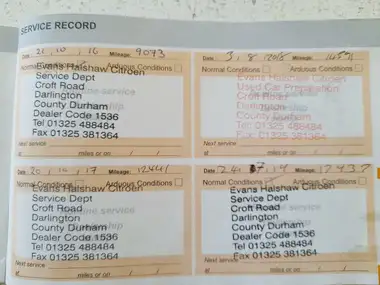 SERVICE RECORD
Date 21, 10, 16 Mileage: 9073
Normal Conditions Arduous Conditions
Evans Halshaw Citroen
Service Dept
Croft Road
Darlington
County Durham
Dealer Code 1536
Tel 01325 488484
Fax 01325 381364
Next service
at miles or on / /
Date 3, 8
Normal Conditions Arduous Conditions
Evans Halshaw Citroen
Used Car Preparation
Croft Road
Darlington
County Durham
Dealer Code 1536
Tel 01325 488484
Fax 01325 381364
Next service
at miles or on / /
Date 20, 10, 17 Mileage: 12441
Normal Conditions Arduous Conditions
Evans Halshaw Citroen
Service Dept
Croft Road
Darlington
County Durham
Dealer Code 1536
Tel 01325 488484
Fax 01325 381364
Next service
at miles or on / /
Date Mileage: 12937
Normal Conditions Arduous Conditions
Evans Halshaw Citroen
Service Dept
Croft Road
Darlington
County Durham
Dealer Code 1536
Tel 01325 488484
Fax 01325 381364
Next service
at miles or on / /